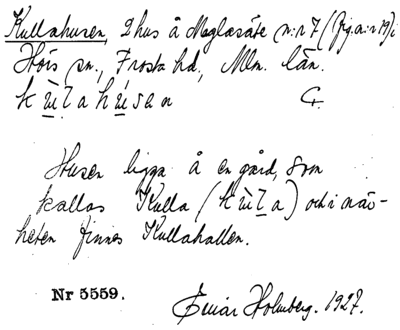 Kullahusen, 2 hus å Maglasäte n:r 7 (fig. n:r 19) i
Hörs sn., Frosta hd, Mlm. län.
k ù̲ l a h ú̲ s e n G.
Husen ligga å en gård, som
kallas Kulla (k ù̲ l a) och i när-
heten finnes Kullahallen.
Nr 5559. Einar Holmberg. 1927.